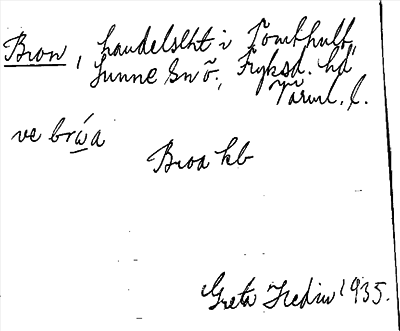 Bron, handelslht i Tomthult,
Sunne sn ö., Fryksd. hd
Värml. l.
ve brωa
Broa kb
Greta Hedin 1935.